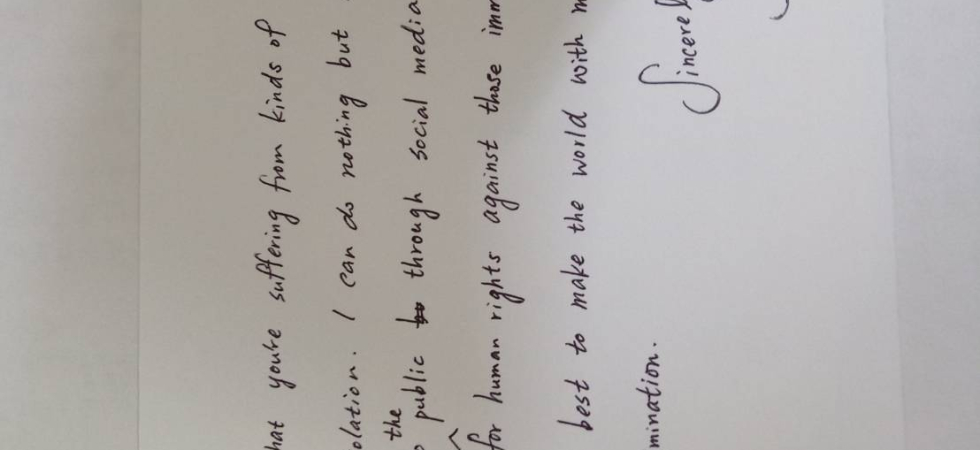 hat you're suffering from kinds of
olation. I can do nothing but
the
public through social media
for human rights against those imm
best to make the world with m
mination.
Sincerel